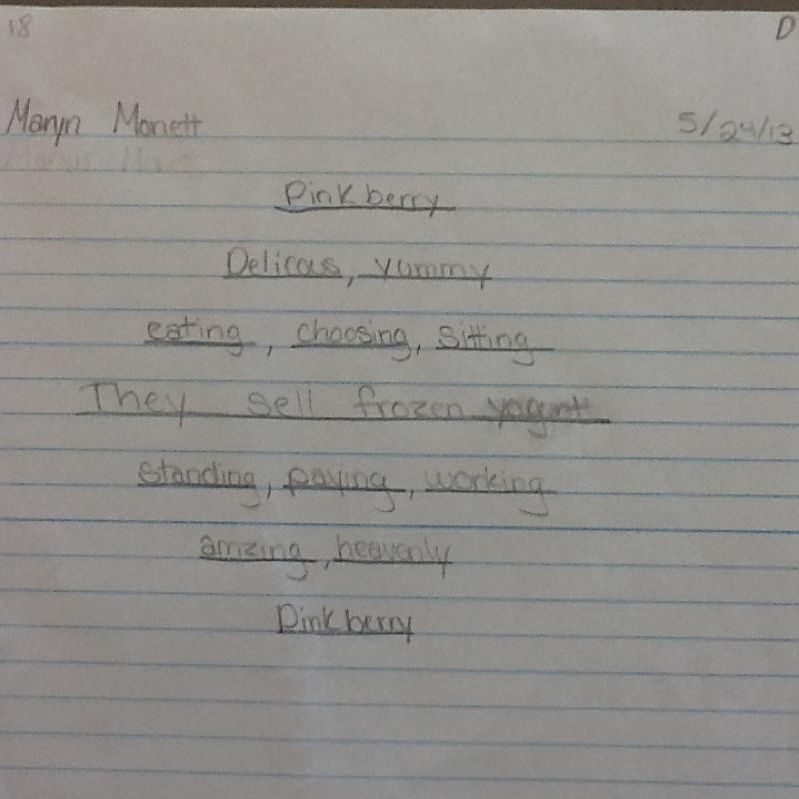 18 D
Maryn Monett 5/24/13
Pinkberry
Delicous, yummy
eating, choosing, sitting
They sell frozen yogurt
standing, paying, working
amzing, heavenly
Pinkberry